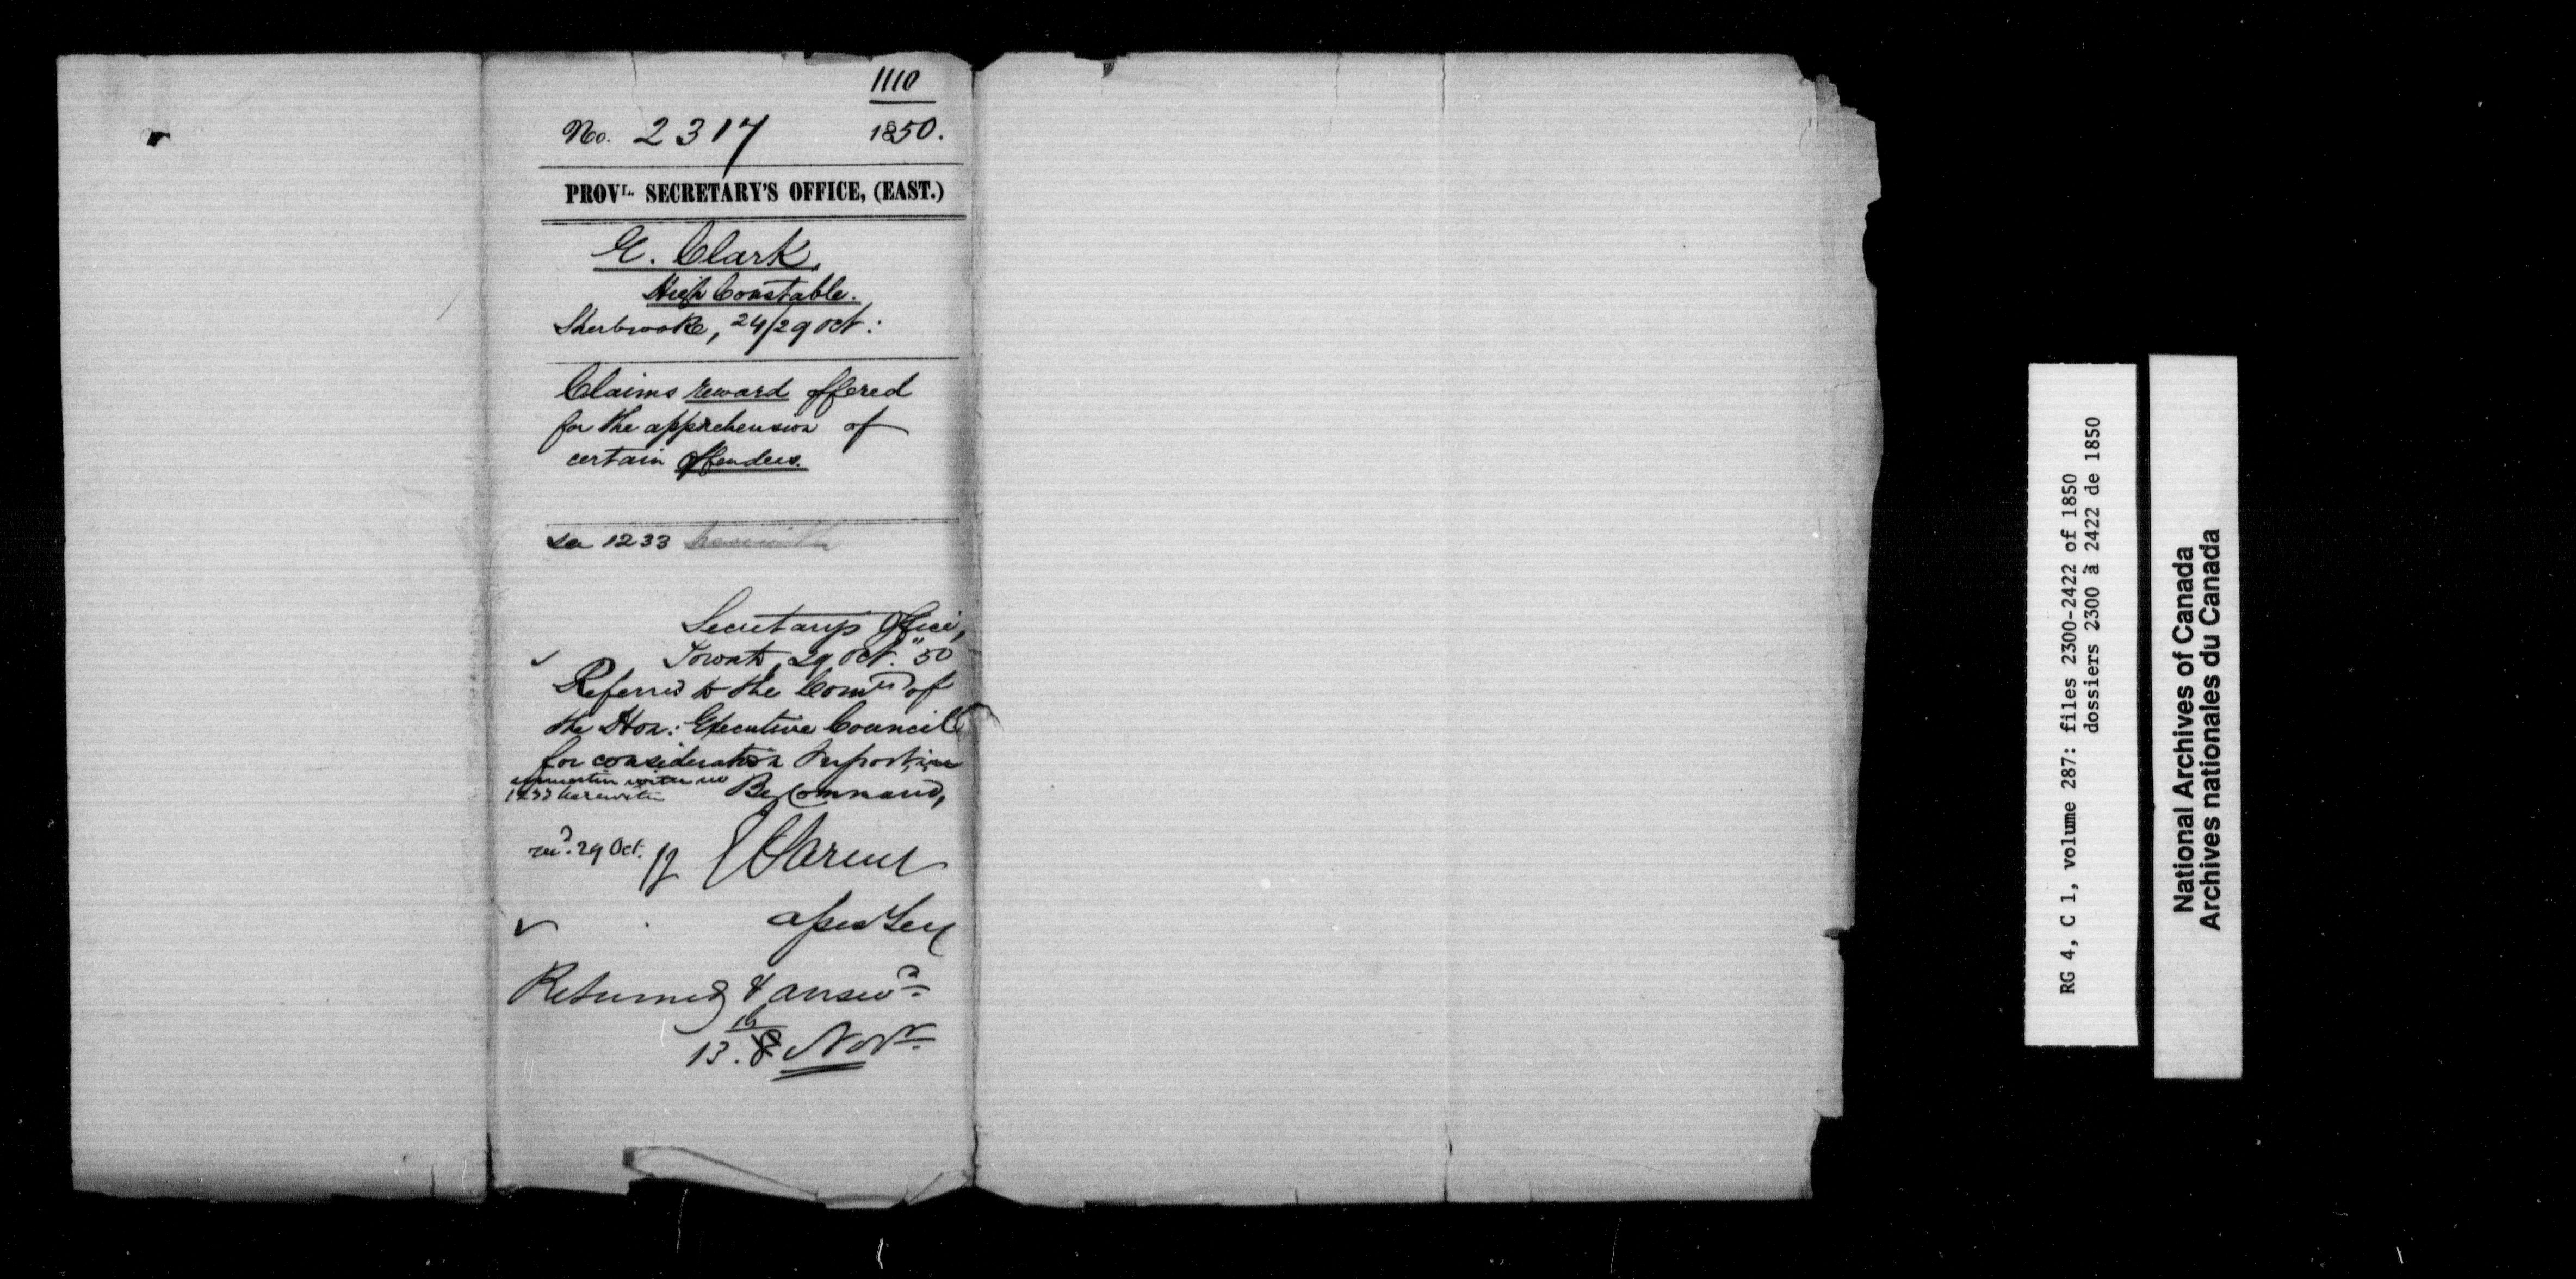 1110
No. 2317 1850.
PROVL. SECRETARY'S OFFICE, (EAST.)
E. Clark,
High Constable.
Sherbrooke, 24/29 Oct:
Claims reward offered
for the apprehension of
certain offenders.
See 1233 herewith
Secretary's Office,
Toronto, 29 Oct. "50
Referred to the Comee of
the Hon: Executive Council
for consideration & report, in
connection with no
1233 herewith
By Command,
recd. 29 Oct. E Parent
Asst Secy
Returned & answd
16
13. 8 Novr.
RG 4, C 1, volume 287: files 2300-2422 of 1850
dossiers 2300 à 2422 de 1850
National Archives of Canada
Archives nationales du Canada